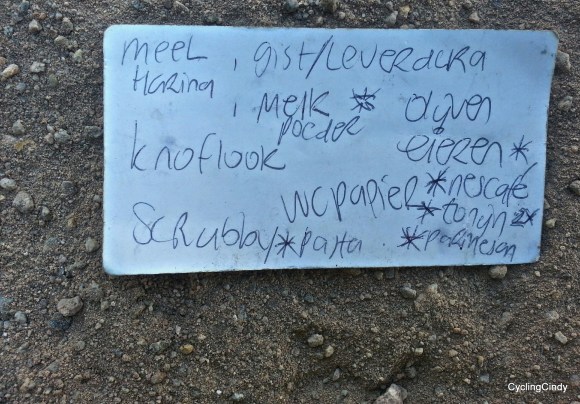 meel, gist/Leveradura
Harina
, melk * ojven
poeder
knoflook eieren *
wcpapier *nescafé
*tonijn 2x
Scrubby *pasta *parmesan
CyclingCindy